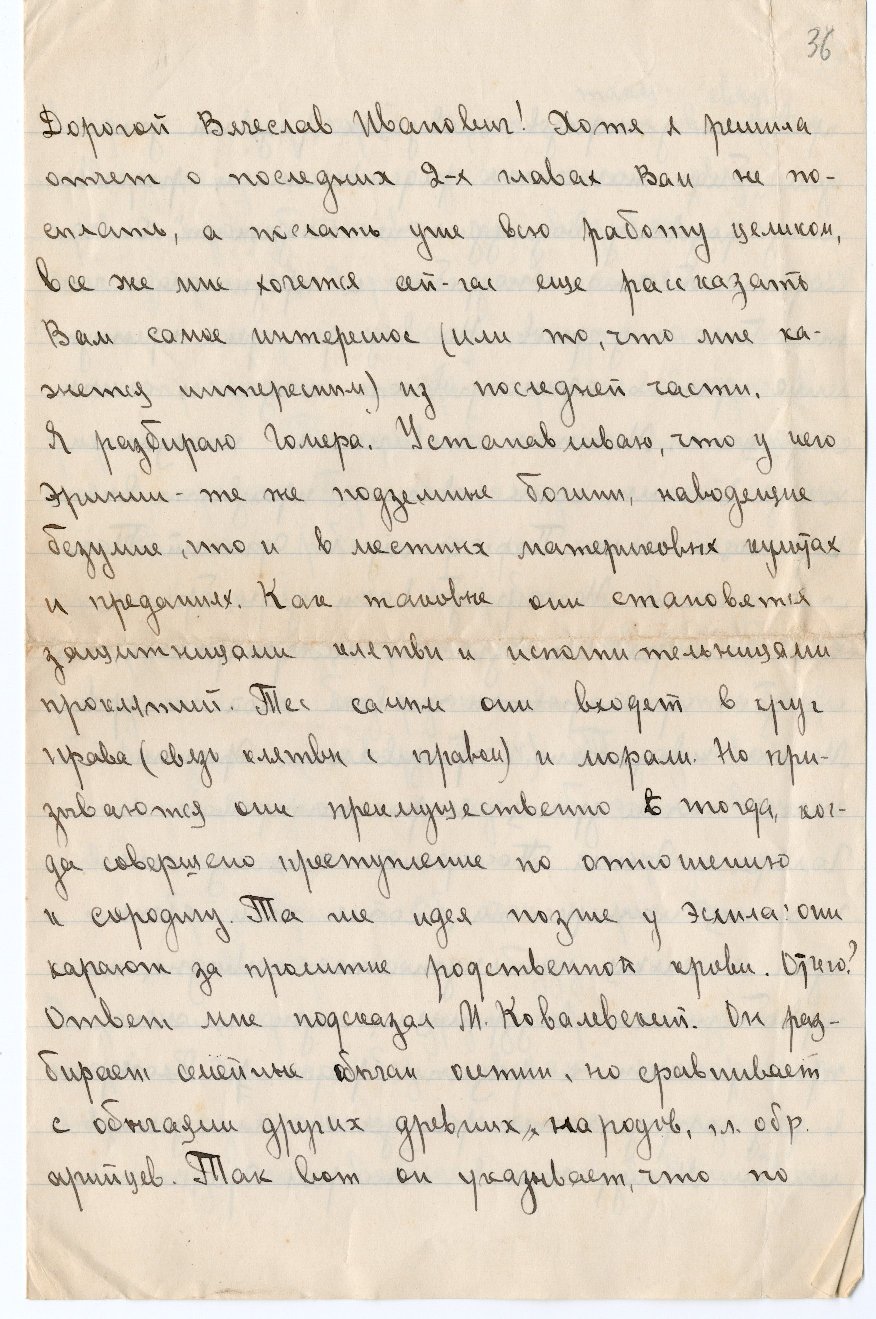 36
Дорогой Вячеслав Иванович! Хотя я решила
отчет о последних 2-х главах Вам не по-
сылать, а послать уже всю работу целиком,
все же мне хочется сей-час еще рассказать
Вам самое интересное (или то, что мне ка-
жется интересным) из последней части.
Я разбираю Гомера. Устанавливаю, что у него
Эринии - те же подземные богини, наводящие
безумие, что и в местных материковых культах
и преданиях. Как таковые они становятся
защитницами клятвы и исполнительницами
проклятий. Тем самым они входят в круг
права (связь клятвы с правом) и морали. Но при-
зываются они преимущественно тогда, ког-
да совершено преступление по отношению
к сородичу. Та же идея позже у Эсхила: они
карают за пролитие родственной крови. Отчего?
Ответ мне подсказал М. Ковалевский. Он раз-
бирает семейные обычаи осетин, но сравнивает
с обычаями других древних народов, гл. обр.
арийцев. Так вот он указывает, что по